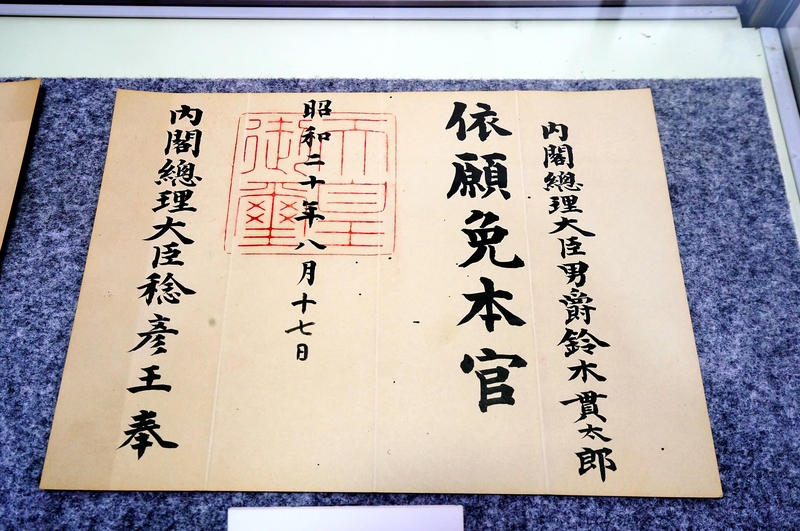 内閣總理大臣男爵鈴木貫太郎
依願免本官
昭和二十年八月十七日
天皇御璽
内閣總理大臣稔彦王奉